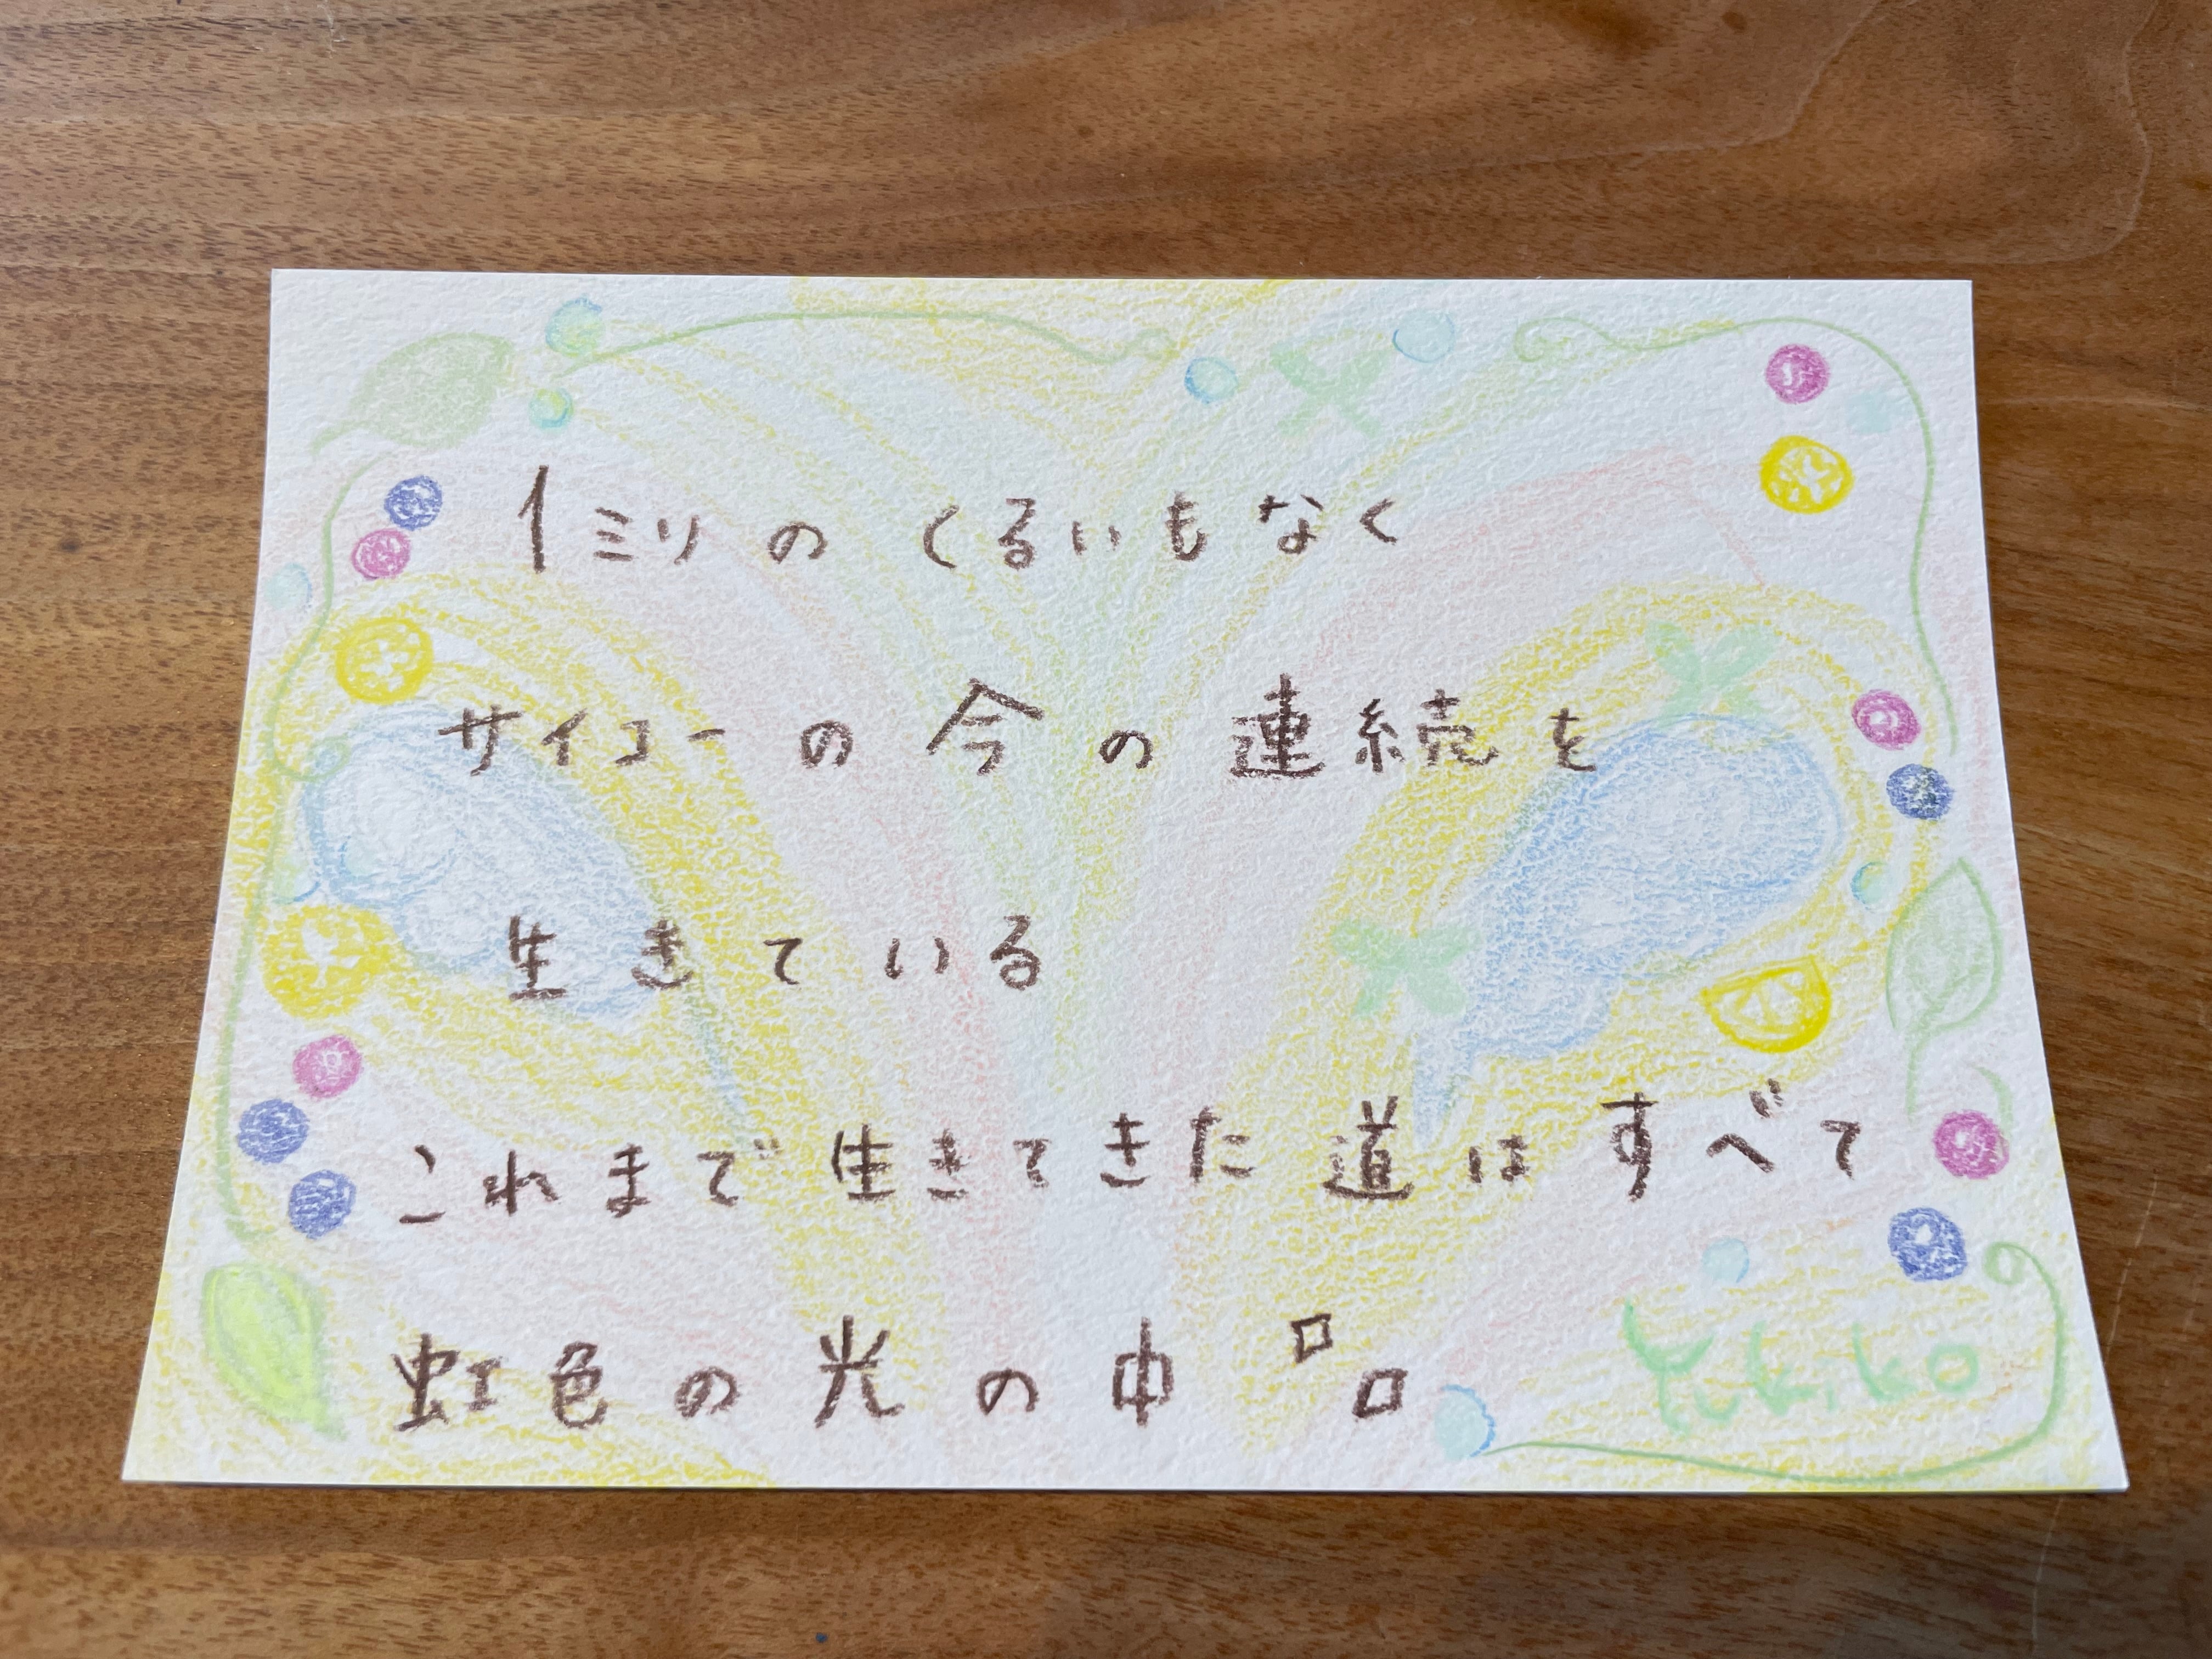 1ミリのくるいもなく
サイコーの今の連続を
生きている
これまで生きてきた道はすべて
虹色の光の中
Yukiko